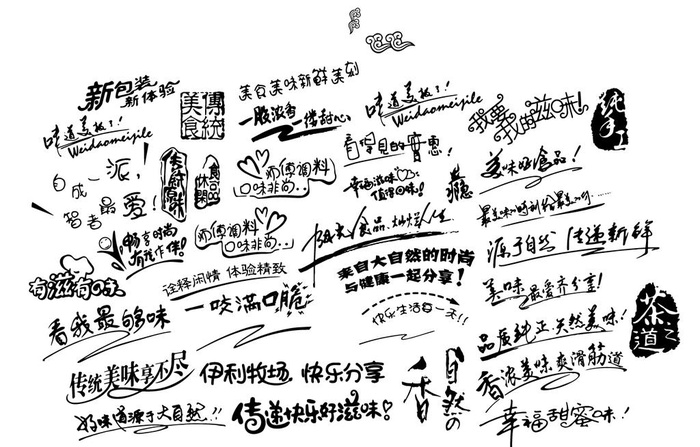 新包装
新体验
傳統
美食
美食美味新鲜美刻
一股浓香
一偿甜心
味道美极了!
Weidaomeijile
味道美极了!
Weidaomeijile
我要
我的滋味!
纯手工
看得见的實惠!
自成一派!
智者最爱!
休閑
食品
师傅调料
口味非尚...
幸福滋味
值得回味!
美味旺食品!
畅享时尚
有我作伴!
师傅调料
口味非尚...
阳光食品灿烂人生
源于自然 传递新鲜
有滋有味
诠释闲情 体验精致
来自大自然的时尚
与健康一起分享!
美味最爱齐分享!
看我最够味
一咬满口脆
快乐生活每一天!!
品质纯正天然美味!
茶之道
传统美味享不尽
伊利牧场 快乐分享
香
自然の
香浓美味爽滑筋道
好味道源于大自然!!
传递快乐好滋味!
幸福甜蜜味!